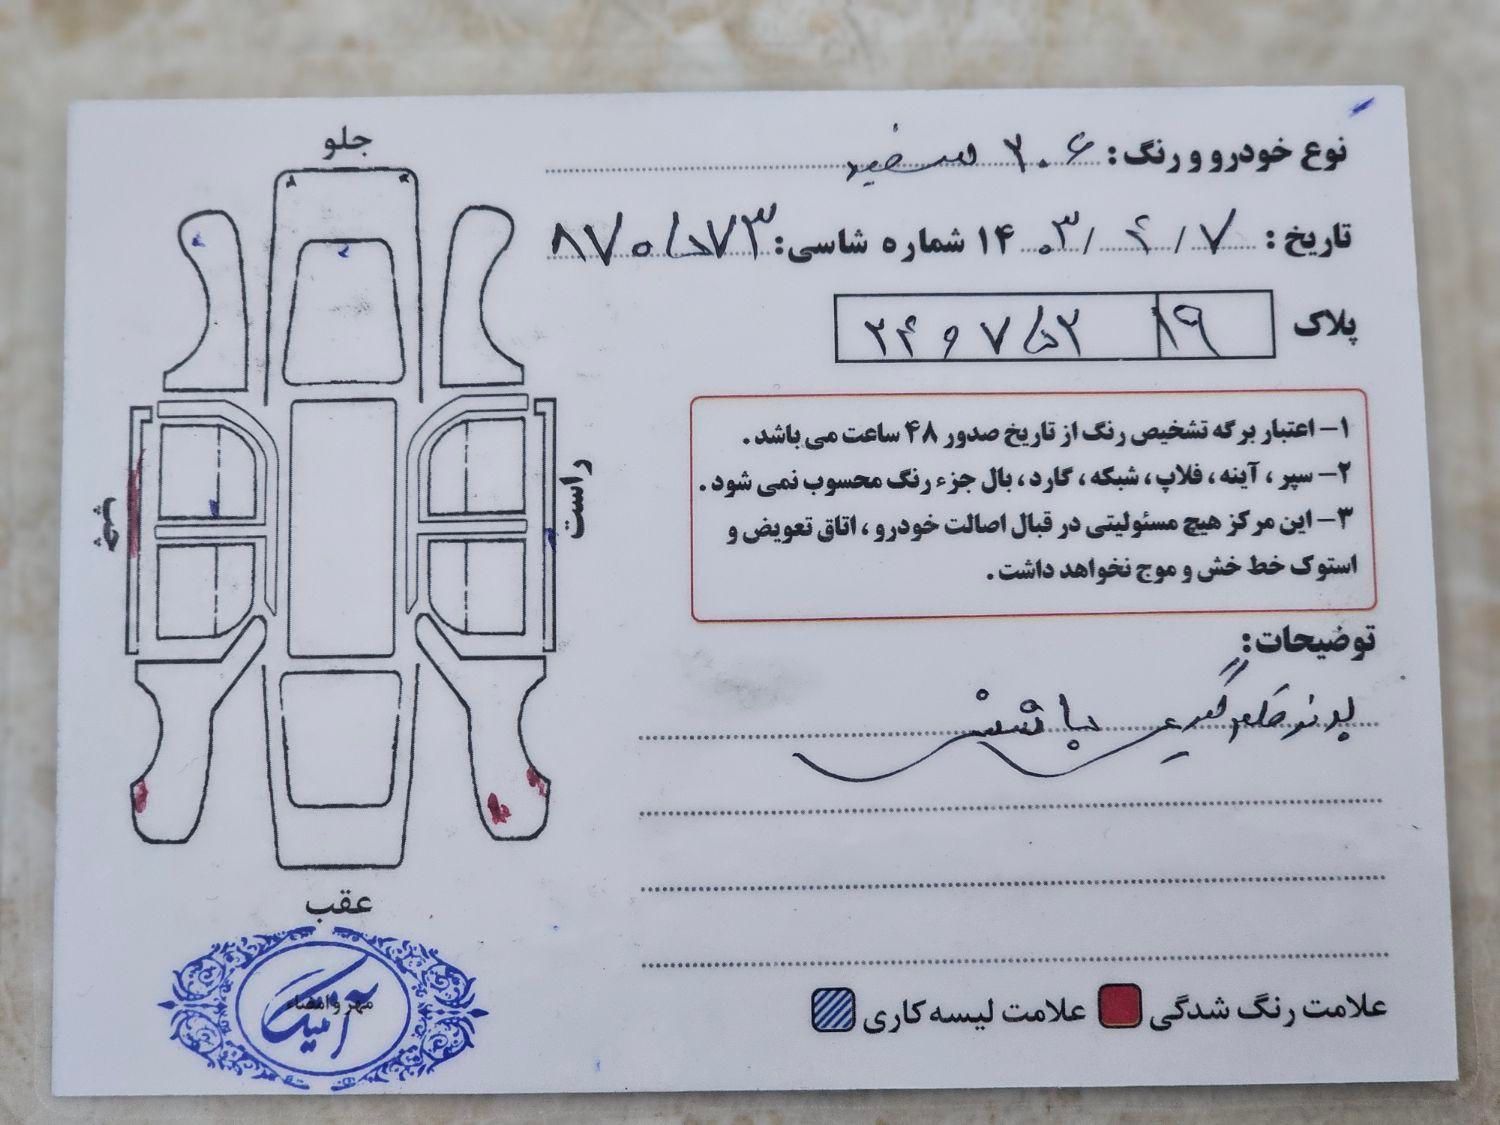 نوع خودرو و رنگ: ۲۰۶ سفید
تاریخ: ۷ / ۴ / ۱۴۰۳ شماره شاسی: ۸۷۰۵۷۳
پلاک ۲۴ و ۷۵۲ ۱۹
۱– اعتبار برگه تشخیص رنگ از تاریخ صدور ۴۸ ساعت می باشد.
۲– سپر، آینه، فلاپ، شبکه، گارد، بال جزء رنگ محسوب نمی شود.
۳– این مرکز هیچ مسئولیتی در قبال اصالت خودرو، اتاق تعویض و
استوک خط خش و موج نخواهد داشت.
توضیحات:
علامت رنگ شدگی
علامت لیسه کاری
جلو
راست
چپ
عقب
مهر و امضاء